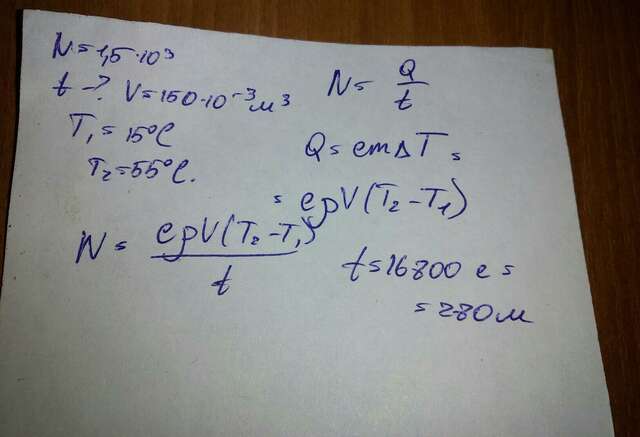 N=1,5·10³
t-? V=150·10⁻³м³
T₁=15°C
T₂=55°C.
N=Q/t
Q=cmΔT=
=cρV(T₂-T₁)
N=cρV(T₂-T₁)/t
t=16800 c=
=280м